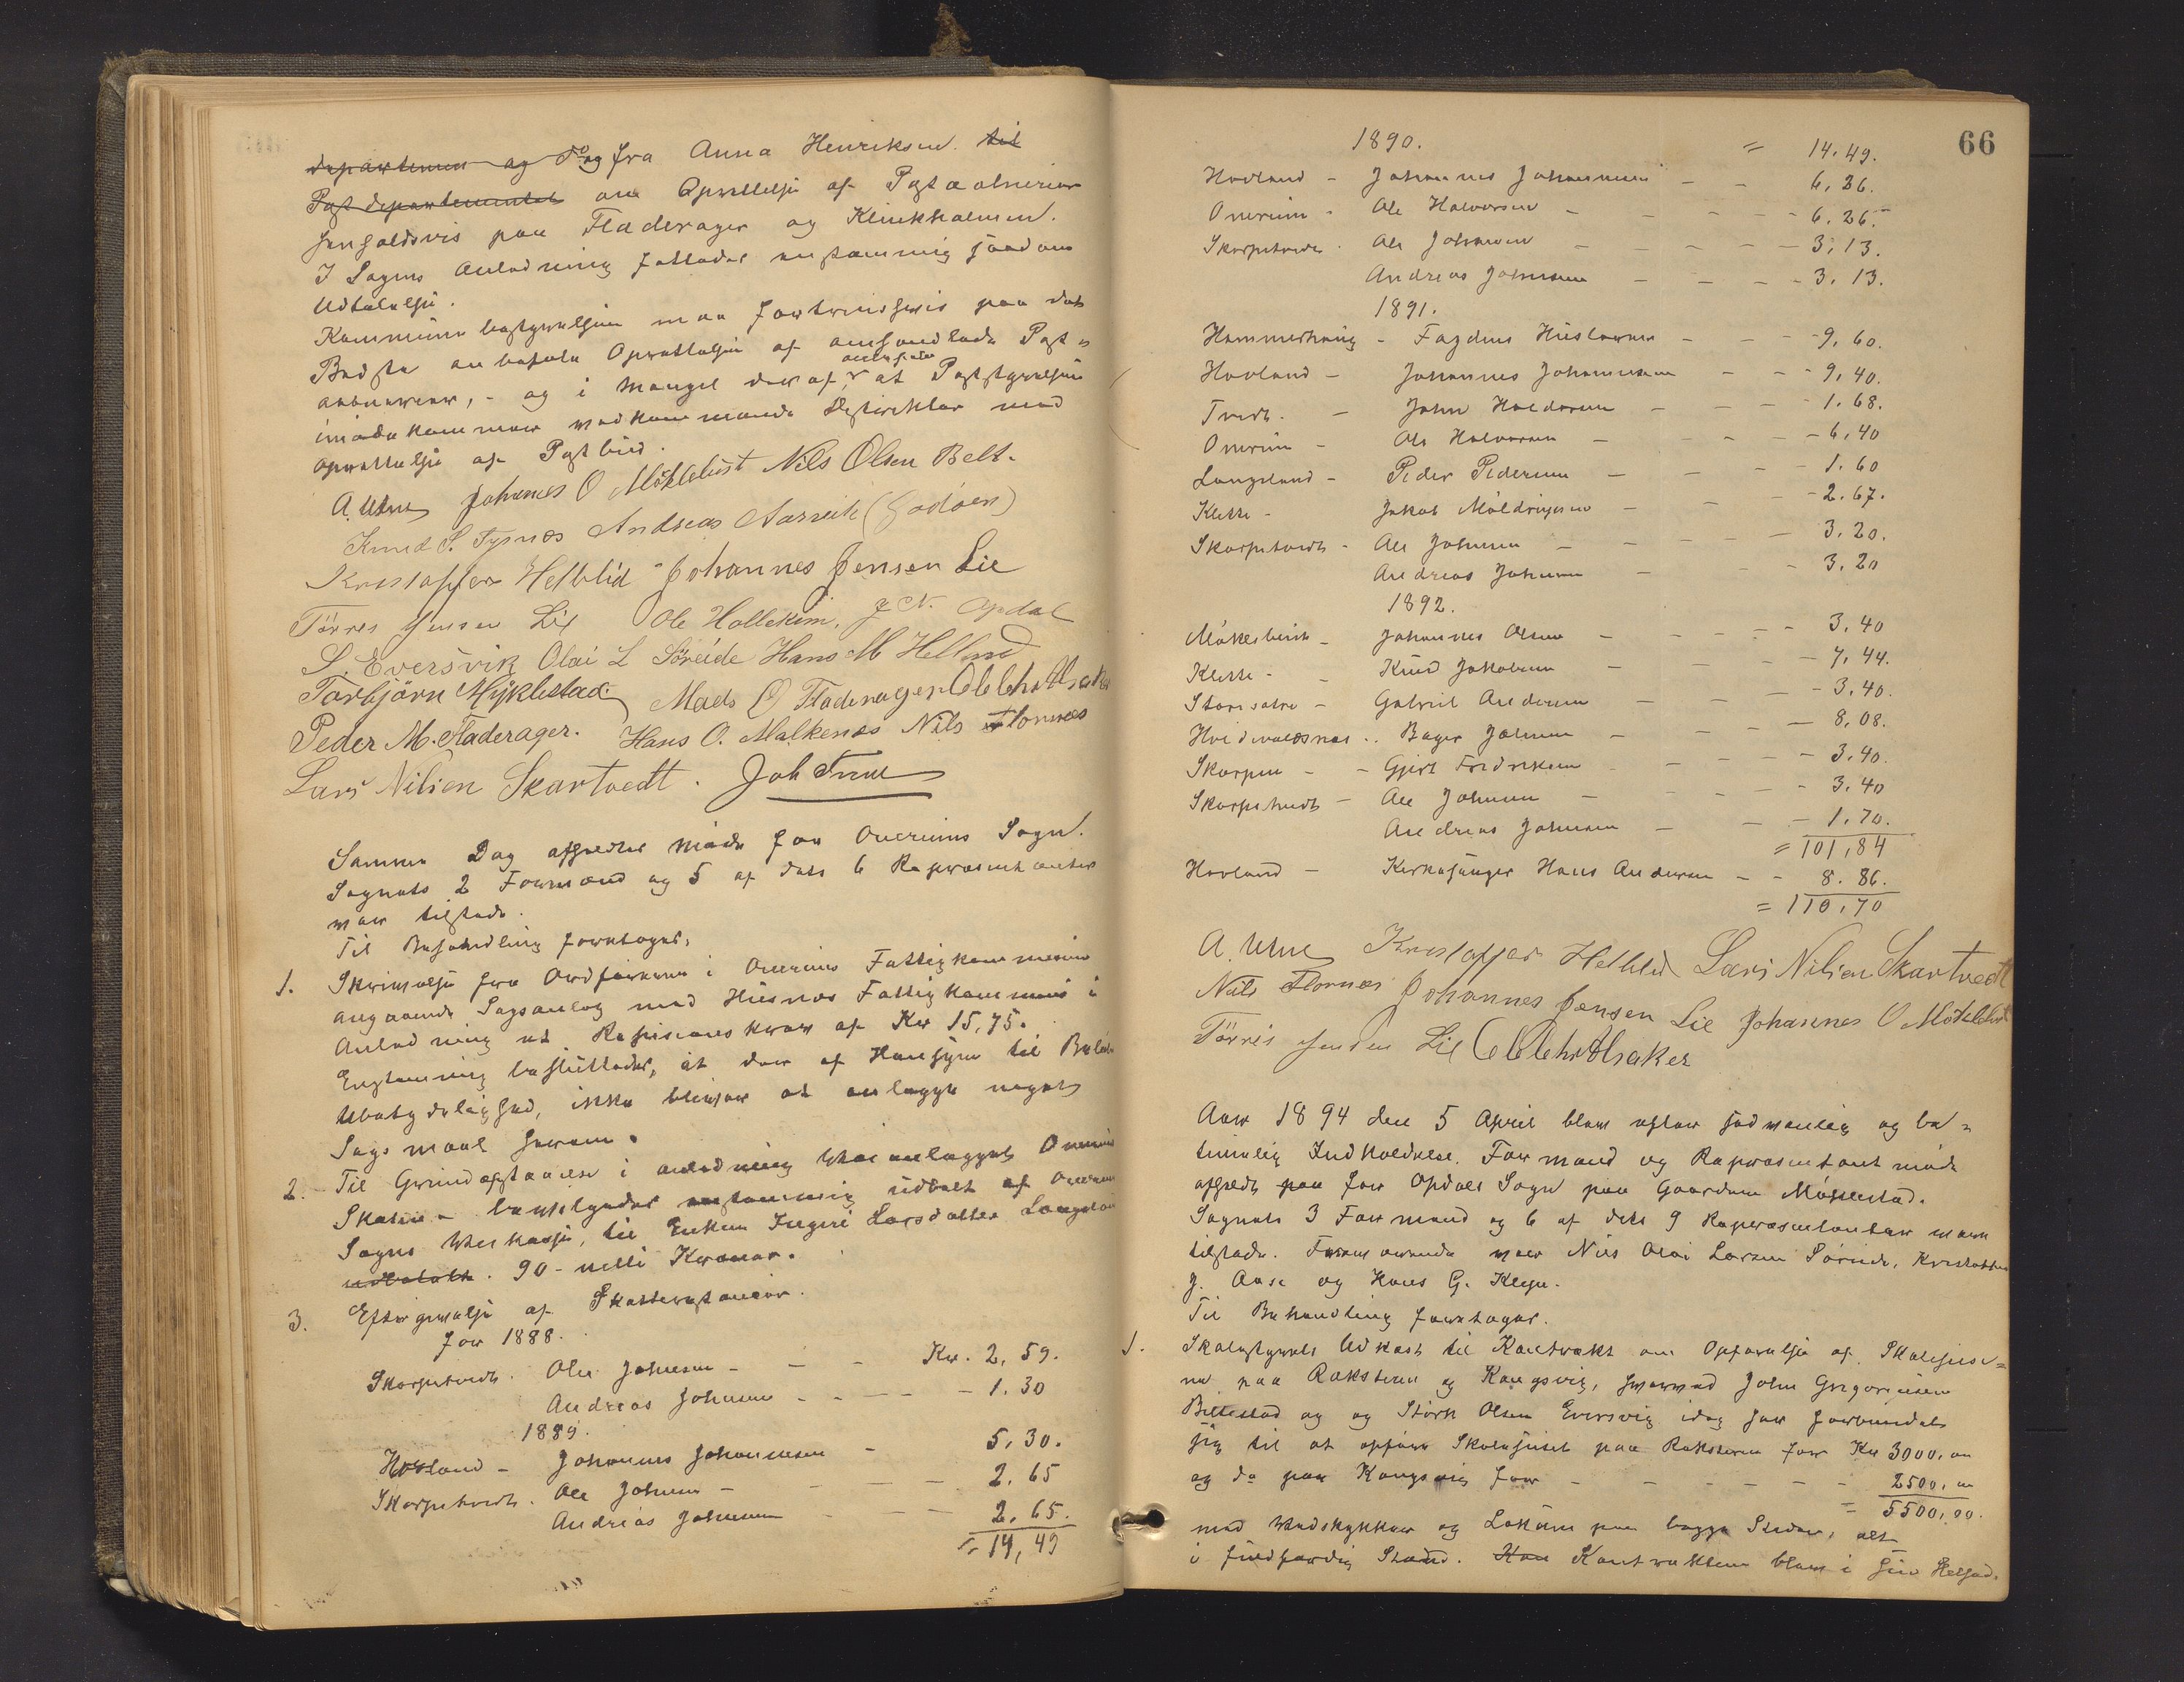 departement og Tog fra Anna Henriksen til
Postdepartementet om Oprettelse af Postaabnerier
henholdsvis paa Fladerager og Klinkholmen.
I Sagens Anledning fattedes enstemmig saadan
Udtalelse.
Kommunebestyrelsen maa fortrinsvis paa det
Bedste anbefale Oprettelsen af omhandlede Post-
aabnerier, - og i Mangel deraf, at Poststyrelsen
imødekommer vedkommende Distrikter med
Oprettelse af Postbud.
A. Uhne Johannes O Möklebust Nils Olsen Belt.
Knud S. Tysnes Andreas Aarseth (Godöen)
Kristoffer Helblid Johannes Jensen Lie
Törres Jensen Lie Ole Hollekim, J N. Opdal
S. Eversvik Olai L Söreide Hans M Helland
Torbjörn Myklestad Mads O Fladerager
Peder M. Fladerager. Hans O. Malkenes Nils Flornes
Lars Nilsen Skartvedt.
Samme Dag afholdtes Möde for Onerims Sogn.
Sognets 2 Formænd og 5 af dets 6 Repræsentanter
var tilstede.
Til Behandling foretoges,
1. Skrivelse fra Ordføreren i Onerims Fattigkommission
angaaende Sagsanlæg mod Husnes Fattigkommission i
Anledning et Refusionskrav af Kr 15,75.
Enstemmig besluttedes, at der af Hensyn til Beløbets
Ubetydelighed, ikke bliver at anlægge noget
Sagsmaal herom.
2. Til Grundafstaaelse i anledning Vei anlægget Onerim
Skaten - bevilgedes enstemmig udbetalt af Onerim
Sogns Veikasse, til Enken Ingeri Larsdatter Langeland
udbetalt. 90 - nitti Kroner.
3. Eftergivelse af Skatterestancer.
for 1888.
Skorpetvedt. Ole Johnsen - - - Kr. 2,59.
Andreas Johnsen - - - - 1.30
1889.
Hovland - Johannes Johannesen - 5,30.
Skorpetvedt. Ole Johnsen - - - 2.65
Andreas Johnsen - - - 2.65.
= 14,49
66
1890. = 14.49.
Hovland - Johannes Johannesen - - 6,26.
Onerim - Ole Halvorsen - - - - 6.26.
Skorpetvedt. Ole Johnsen - - - - 3,13.
Andreas Johnsen - - - - 3.13.
1891.
Hammerhaug - Johannes - - - 9,60.
Hovland - Johannes Johannesen - - - 9,40.
Tvedt. - John Haldorsen - - - - 1.68.
Onerim - Ole Halvorsen - - - - 6,40
Langeland - Peder Pedersen - - - - 1.60
Klette - Jakob - - - 2.67.
Skorpetvedt - Ole Johnsen - - - - 3,20.
Andreas Johnsen - - - 3.20
1892.
Mökelbust - Johannes Olsen - - - - 3,40
Klette - - Knud Jakobsen - - - 7,44.
Storesætre - Gabriel Andersen - - - 3,40.
Hvidevaldsnes - Johnsen - - 8,08.
Skorpen - - Gjert Fredriksen - - - - 3,40.
Skorpetvedt - Ole Johnsen - - - - 3,40
Andreas Johnsen - - - 1.70.
= 101,84
Hovland - Kirkesanger Hans Andersen - - 8.86.
= 110,70
A. Uhne Kristoffer Helblid Lars Nilsen Skartvedt
Nils Flornes Johannes Jensen Lie Johannes O Möklebust
Törres Jensen Lie
Aar 1894 den 5 April blev efter sædvanlig og be-
timelig Indkaldelse. Formand og Repræsentant möde
afholdt paa for Opdals Sogn paa Gaarden Möklestad.
Sognets 3 Formænd og 6 af dets 9 Repræsentanter var
tilstede. Fraværende var Nils Olai Larsen Söreide, Kristoffer
J. Aase og Hans G. Kleppe.
Til Behandling foretoges.
1. Skolestyrets Udkast til Kontrakt om Opførelse af Skolehuse-
ne paa Raksteren og Kongsvig, hvorved John Gregoriusen
Bellestad og og Störk Olsen Eversvig idag har forbundet
sig til at opføre Skolehuset paa Raksteren for Kr 3000,00
og do paa Kongsvig for - - - - - 2500,00
= 5500,00.
med Vedskykker og Lokum paa begge Steder, alt
i fuldfærdig Stand. Kon Kontrakten blev i sin Helhed.